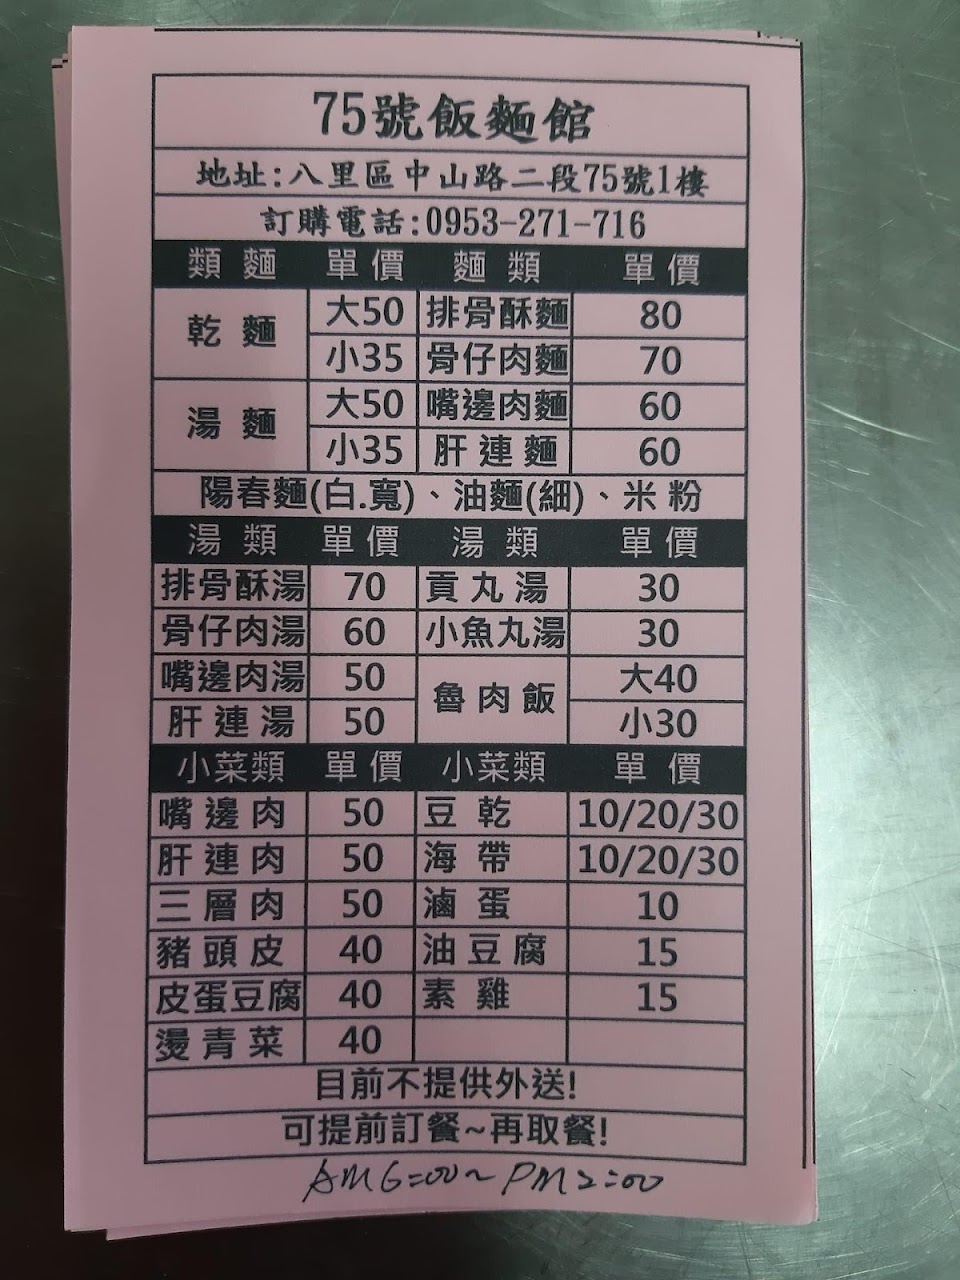 75號飯麵館
地址:八里區中山路二段75號1樓
訂購電話:0953-271-716
類麵 單價 麵類 單價
乾麵 大50 排骨酥麵 80
小35 骨仔肉麵 70
湯麵 大50 嘴邊肉麵 60
小35 肝連麵 60
陽春麵(白.寬)、油麵(細)、米粉
湯類 單價 湯類 單價
排骨酥湯 70 貢丸湯 30
骨仔肉湯 60 小魚丸湯 30
嘴邊肉湯 50 魯肉飯 大40
肝連湯 50 小30
小菜類 單價 小菜類 單價
嘴邊肉 50 豆乾 10/20/30
肝連肉 50 海帶 10/20/30
三層肉 50 滷蛋 10
豬頭皮 40 油豆腐 15
皮蛋豆腐 40 素雞 15
燙青菜 40
目前不提供外送!
可提前訂餐~再取餐!
AM6:00~PM2:00